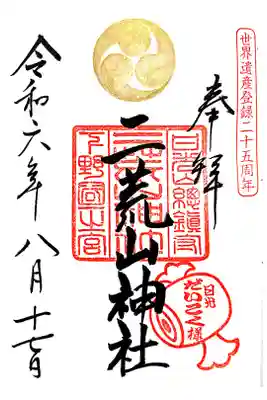 世界遺産登録二十五周年
奉拝
二荒山神社
日光山總鎮守
下野國一之宮
日光
だいこく様
令和六年八月十七日